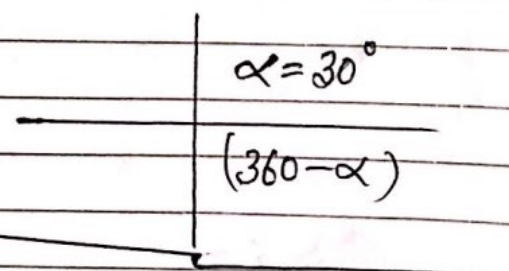 α = 30°
(360 - α)